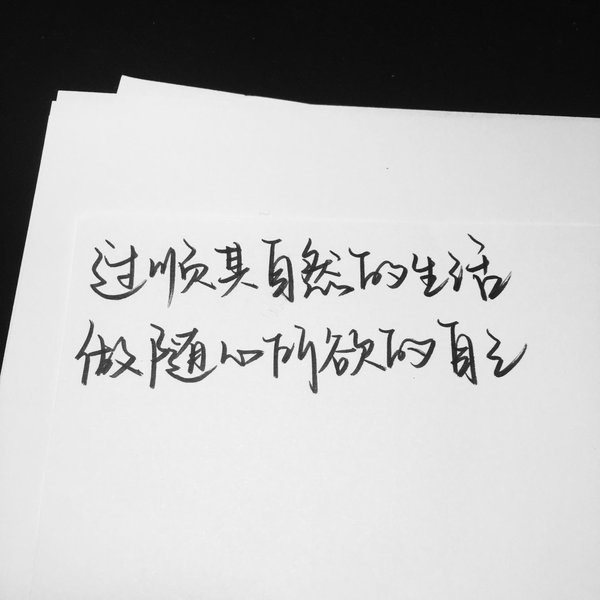 过顺其自然的生活
做随心所欲的自己